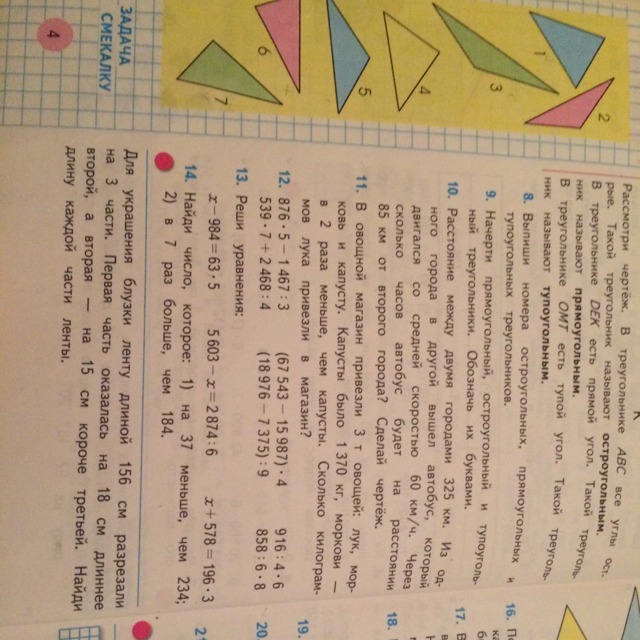 К
Рассмотри чертёж. В треугольнике ABC все углы ост-
рые. Такой треугольник называют остроугольным.
В треугольнике DEK есть прямой угол. Такой треуголь-
ник называют прямоугольным.
В треугольнике OMT есть тупой угол. Такой треуголь-
ник называют тупоугольным.
8. Выпиши номера остроугольных, прямоугольных и
тупоугольных треугольников.
9. Начерти прямоугольный, остроугольный и тупоуголь-
ный треугольники. Обозначь их буквами.
10. Расстояние между двумя городами 325 км. Из од-
ного города в другой вышел автобус, который
двигался со средней скоростью 60 км/ч. Через
сколько часов автобус будет на расстоянии
85 км от второго города? Сделай чертёж.
11. В овощной магазин привезли 3 т овощей: лук, мор-
ковь и капусту. Капусты было 1 370 кг, моркови —
в 2 раза меньше, чем капусты. Сколько килограм-
мов лука привезли в магазин?
12. 876 · 5 − 1 467 : 3 (67 543 − 15 987) · 4 916 : 4 · 6
539 · 7 + 2 468 : 4 (18 976 − 7 375) : 9 858 : 6 · 8
13. Реши уравнения:
x − 984 = 63 · 5 5 603 − x = 2 874 : 6 x + 578 = 196 · 3
14. Найди число, которое: 1) на 37 меньше, чем 234;
2) в 7 раз больше, чем 184.
Для украшения блузки ленту длиной 156 см разрезали
на 3 части. Первая часть оказалась на 18 см длиннее
второй, а вторая — на 15 см короче третьей. Найди
длину каждой части ленты.
1
2
3
4
5
6
7
ЗАДАЧА
СМЕКАЛКУ
4
16.
17.
18.
19.
20